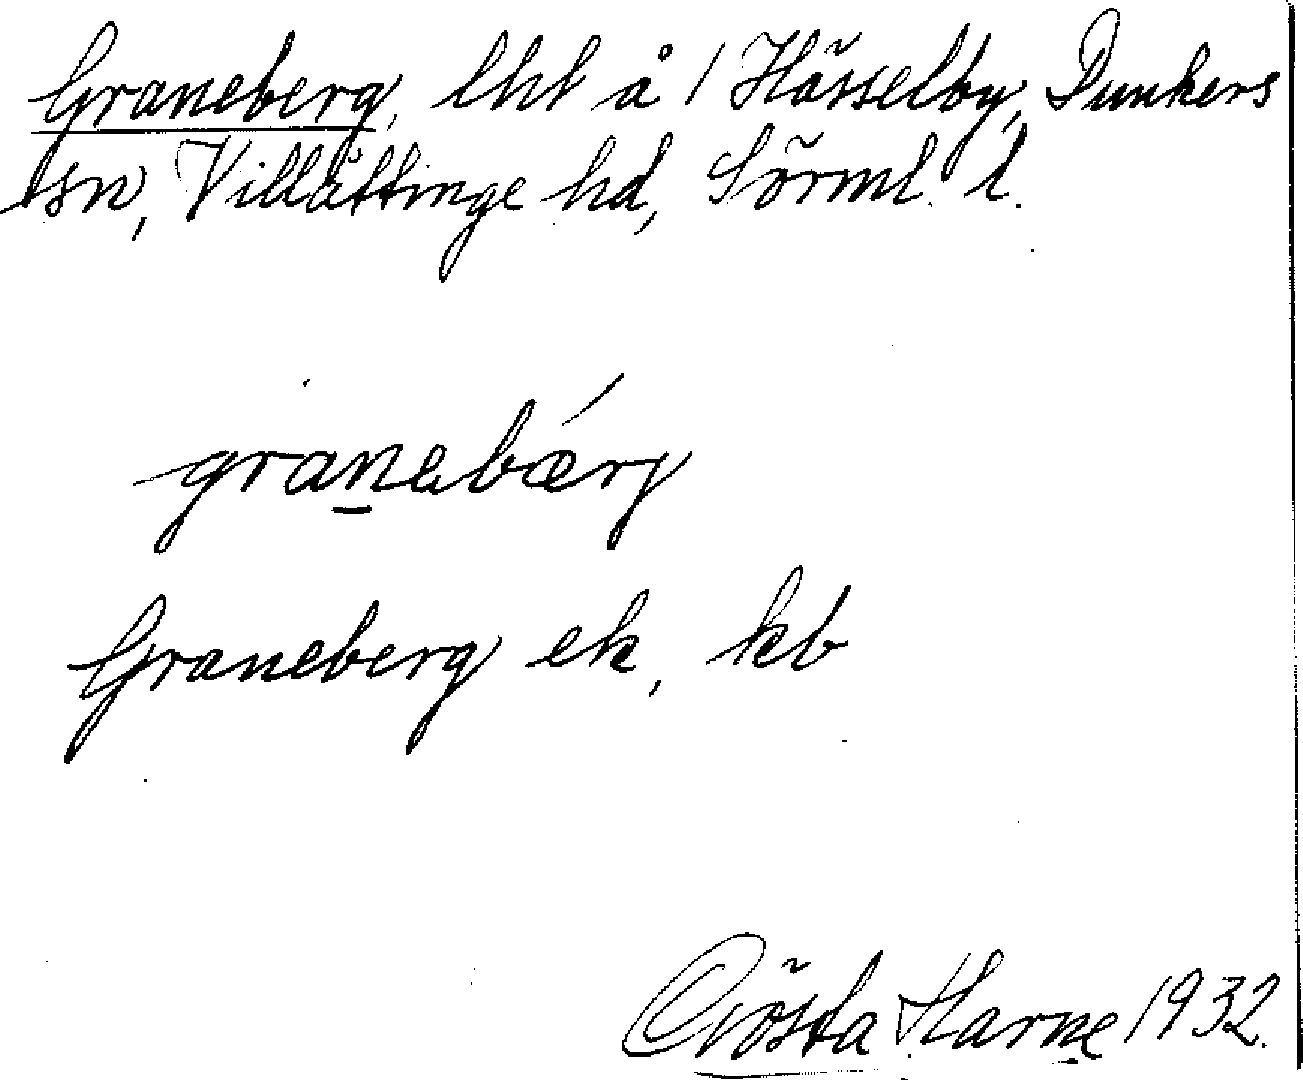 Graneberg, lht å 1 Hässelby, Dunkers
sn, Villåttinge hd, Sörml. l.
granabærj
Graneberg ek, kb
Gösta Harne 1932.